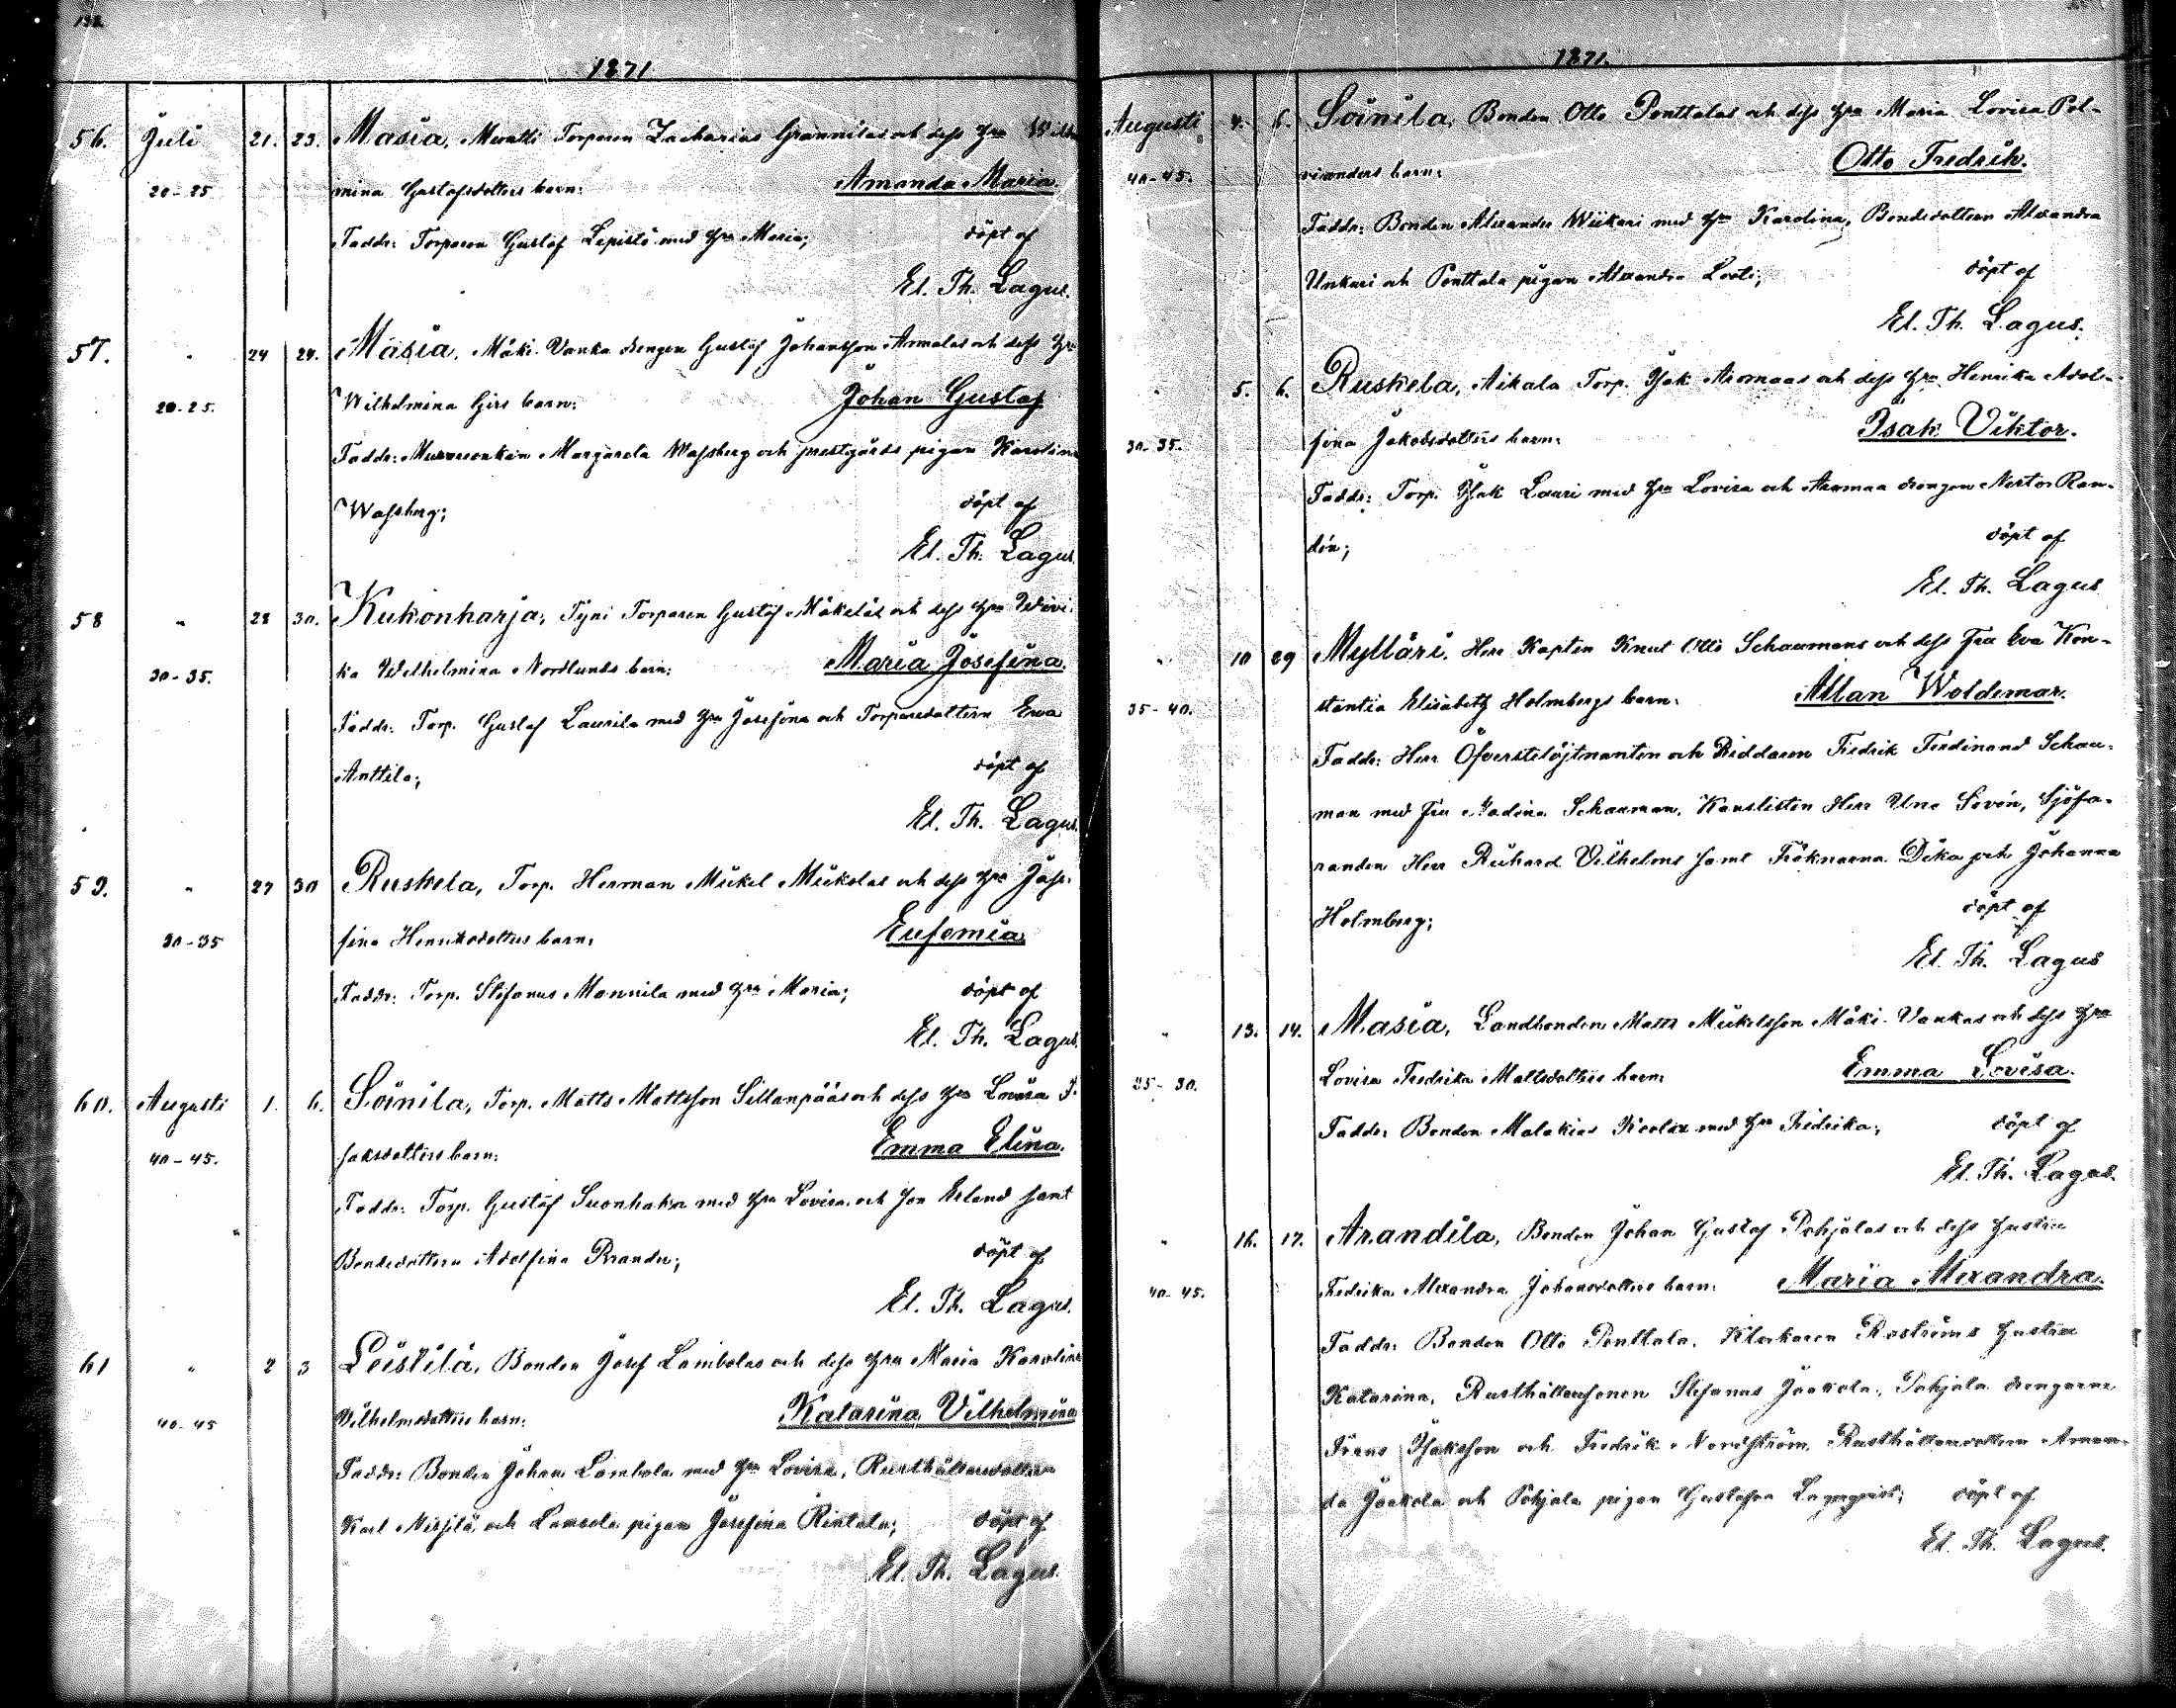 132.
1871
56. Juli 21. 23. Masia, Muratti Torparen Zacharias Grannilas och dess Hru Wilhel
20-25 mina Gustafsdotters barn: Amanda Maria.
Faddr: Torparen Gustaf Lepistö med Hru Maria; döpt af
El. Th. Lagus.
57. " 24 24. Masia, Mäki-Vanka drengen Gustaf Johansson Annalas och dess Hru
20-25. Wilhelmina Girs barn: Johan Gustaf
Faddr: Margareta Wassberg och prestgårds pigan Karolina
Wassberg; döpt af
El. Th. Lagus
58 " 28 30. Kukonharja, Tyni Torparen Gustaf Mäkeläs och dess Hru Ulrii-
30-35. ka Wilhelmina Nordlunds barn: Maria Josefina.
Faddr: Torp. Gustaf Laurila med Hru Josefina och Torparedottern Ewa
Anttila; döpt af
El. Th. Lagus.
59. " 27 30 Ruskela, Torp. Herman Mickel Mickolas och dess Hru Jose-
30-35 fina Henriksdotters barn: Eufemia
Faddr: Torp. Stefanus Mannila med Hru Maria; döpt af
El. Th. Lagus.
60. Augusti 1. 6. Soinila, Torp. Matts Mattsson Sillanpääs och dess Hru Lovisa I-
40-45. saksdotters barn: Emma Elina.
Faddr: Torp. Gustaf Suonhakso med Hru Lovisa och son Erland samt
Bondedottern Adolfina Prander; döpt af
El. Th. Lagus.
61 " 2 3 Leistilä, Bonden Josef Lambolas och dess Hru Maria Karolina
40-45 Vilhelmsdotters barn: Katarina Vilhelmina
Faddr: Bonden Johan Lambola med Hru Lovisa, Rusthållaredottern
Karl och pigan Josefina Rintala; döpt af
El. Th. Lagus.
1871.
Augusti 4. 6. Soinila, Bonden Otto Penttalas och dess Hru Maria Lovisa Pol-
40-45. vianders barn: Otto Fredrik.
Faddr: Bonden Alexander Wiikari med Hru Karolina, Bondedottern Alexandra
Unkari och Penttala pigan Alexandra Looti; döpt af
El. Th. Lagus.
" 5. 6. Ruskela, Aikala Torp. Isak Aromaas och dess Hru Henrika Adol-
30-35. fina Jakobsdotters barn: Isak Viktor.
Faddr: Torp. Isak Lauri med Hru Lovisa och Aromaa drengen Nestor Ran-
din; döpt af
El. Th. Lagus
" 10 29 Mylläri, Herr Kapten Knut Otto Schaumans och dess Fru Eva Kon-
35-40. stantia Elisabeth Holmbergs barn: Allan Woldemar.
Faddr: Herr Öfverstelöjtnanten och Riddaren Fredrik Ferdinand Schau-
man med Fru Nadina Schauman, Kanslisten Herr Uno Sivén, Sjöfa-
randen Herr Richard Vilhelms samt Fröknarna Dika och Johanna
Holmberg; döpt af
El. Th. Lagus
" 13. 14. Masia, Landbonden Matts Mickelsson Mäki-Vankas och dess Hru
25-30. Lovisa Fredrika Mattsdotters barn: Emma Lovisa.
Faddr: Bonden Malakias med Hru Fredrika; döpt af
El. Th. Lagus.
" 16. 17. Arandila, Bonden Johan Gustaf Pohjalas och dess Hustru
40-45. Fredrika Alexandra Johansdotters barn: Maria Alexandra.
Faddr: Bonden Otto Penttala, Klockaren Roströms Hustru
Katarina, Rusthållaresonen Stefanus Jaakola, Pohjala drengarne
Frans Isaksson och Fredrik Nordström, Rusthållaredottern Aman-
da Jaakola och Pohjala pigan Gustafva Lagerqvist; döpt af
El. Th. Lagus.